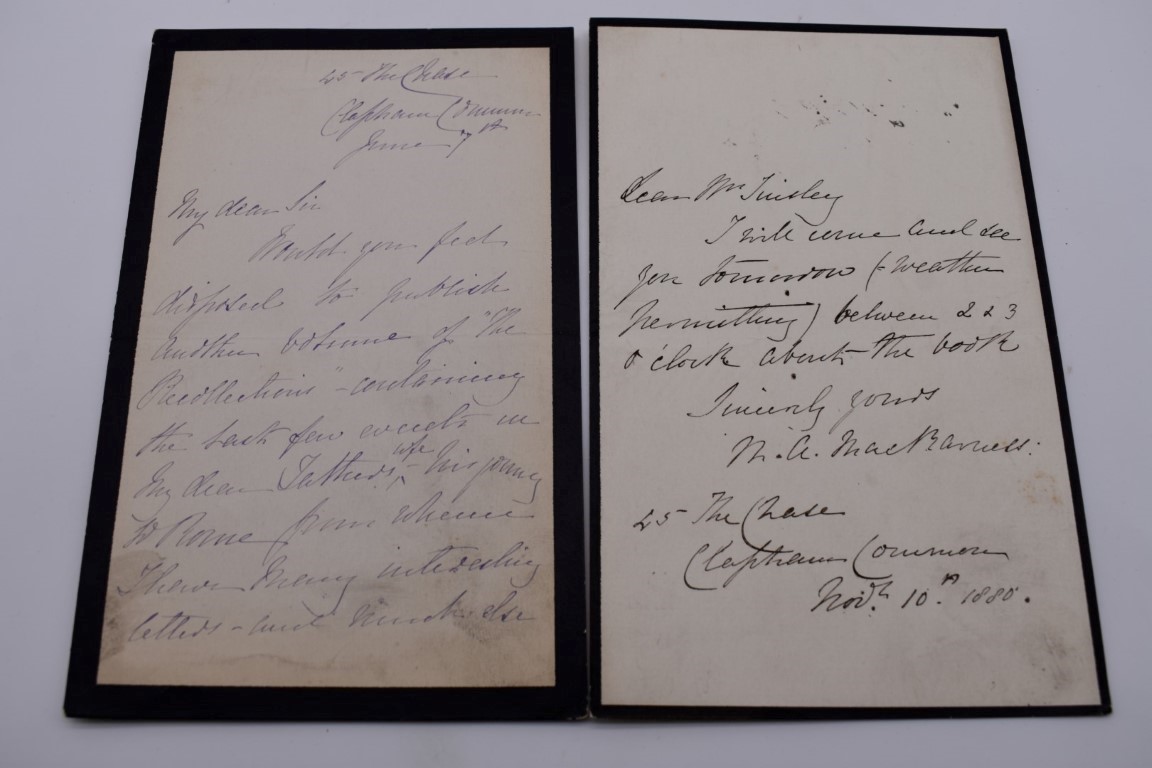 45 The Chase
Clapham Common
June 7th
My dear Sir
Would you feel
disposed to publish
another volume of "The
Recollections" - containing
the last few events in
My dear Father's life - his journey
to Rome from whence
I have Many interesting
letters - and Much else
Dear Mr Tinsley
I will come and see
you tomorrow (- weather
permitting) between 2 & 3
o'clock about the book
Sincerely yours
M. A. MacKarness.
45 The Chase
Clapham Common
Novbr. 10th. 1880.